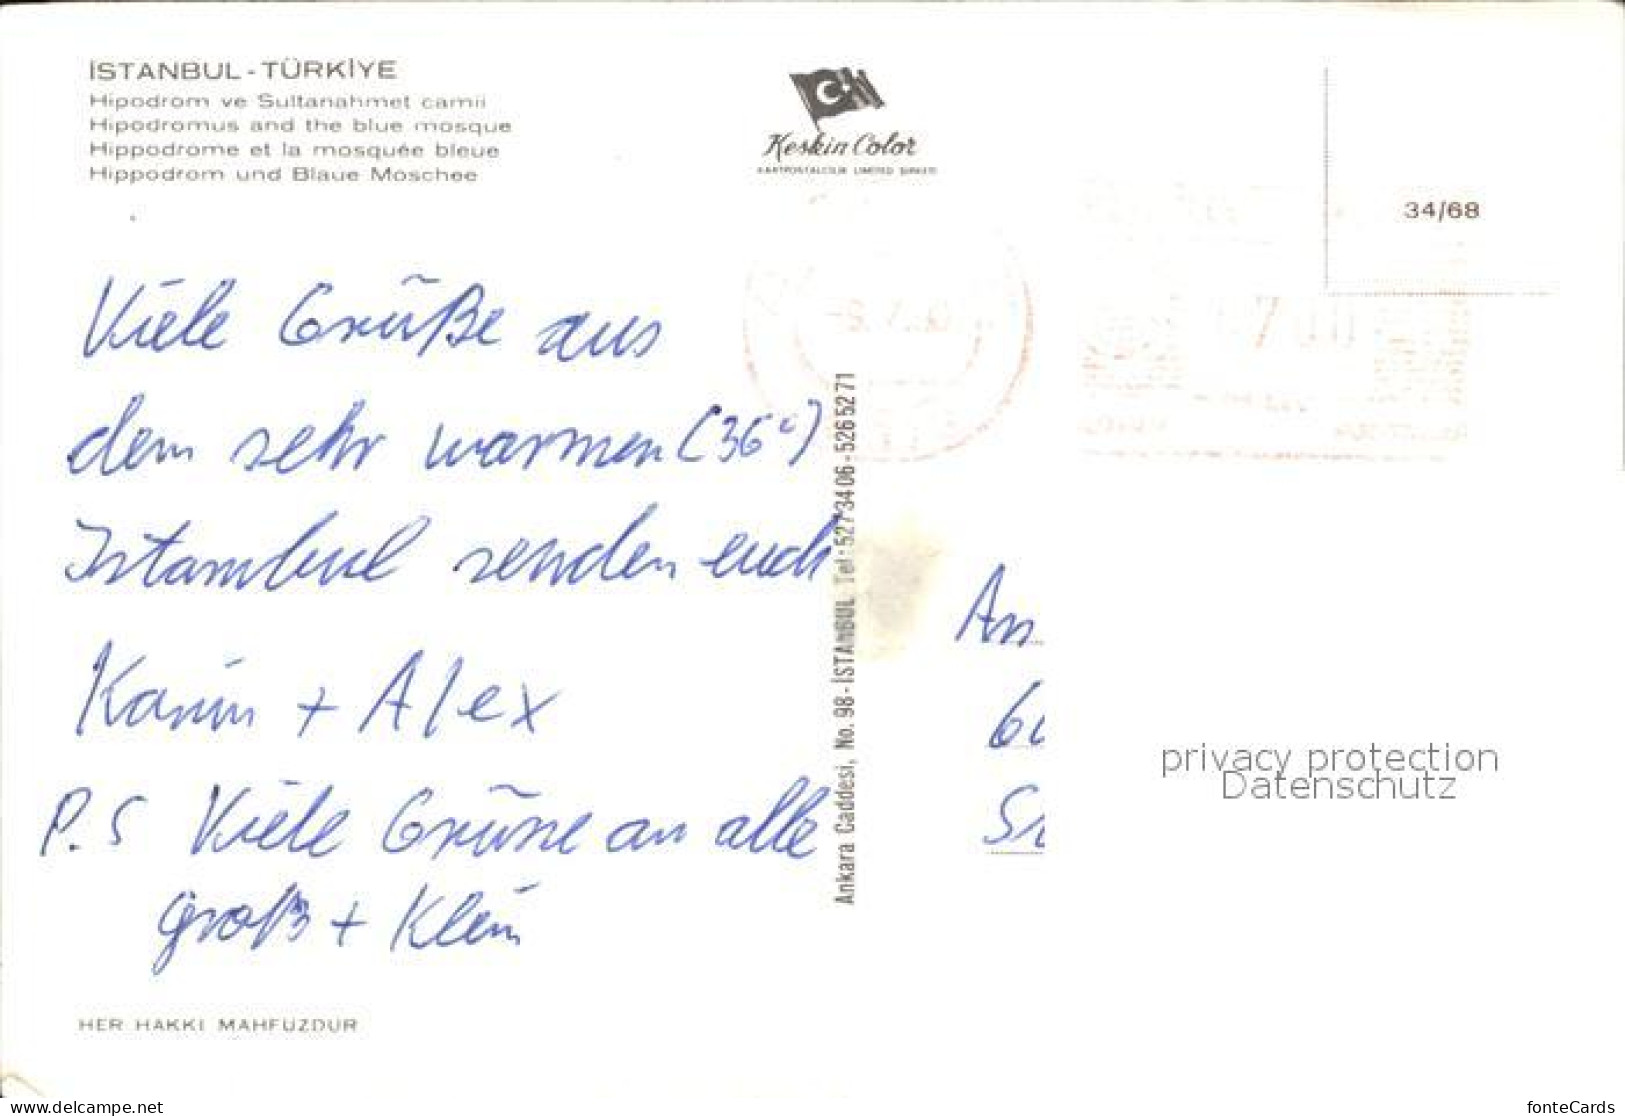 İSTANBUL - TÜRKİYE
Hipodrom ve Sultanahmet camii
Hipodromus and the blue mosque
Hippodrome et la mosquée bleue
Hippodrom und Blaue Moschee
Keskin Color
KARTPOSTALCILIK LIMITED ŞİRKETİ
34/68
700
Viele Grüße aus
dem sehr warmen (36°)
Istambul senden euch
Karin + Alex
P.S Viele Grüße an alle
groß + Klein
HER HAKKI MAHFUZDUR
Ankara Caddesi, No. 98 - İSTANBUL Tel: 527 34 06 - 526 52 71
An
privacy protection
Datenschutz
www.delcampe.net
fonteCards